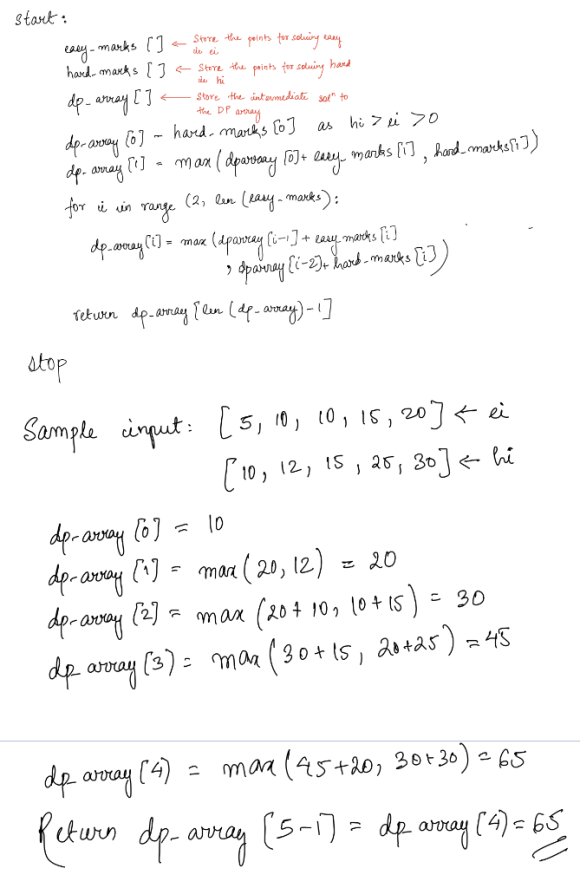 Start :
easy-marks [] ← Store the points for solving easy
de ei
hard-marks [] ← Store the points for solving hard
de hi
dp-array [] ← Store the intermediate solⁿ to
the DP array
dp-array [0] - hard-marks [0] as hi > ei > 0
dp-array [1] = max (dparray [0] + easy_marks [1] , hard-marks [1])
for i in range (2, len (easy-marks) :
dp-array [i] = max (dparray [i-1] + easy marks [i]
, dparray [i-2] + hard-marks [i])
return dp-array [len (dp-array) -1]
stop
Sample input: [5, 10, 10, 15, 20] ← ei
[10, 12, 15, 25, 30] ← hi
dp-array [0] = 10
dp-array [1] = max (20, 12) = 20
dp-array [2] = max (20+10, 10+15) = 30
dp array [3) = max (30+15, 20+25) = 45
dp array [4) = max (45+20, 30+30) = 65
Return dp-array [5-1] = dp array [4) = 65